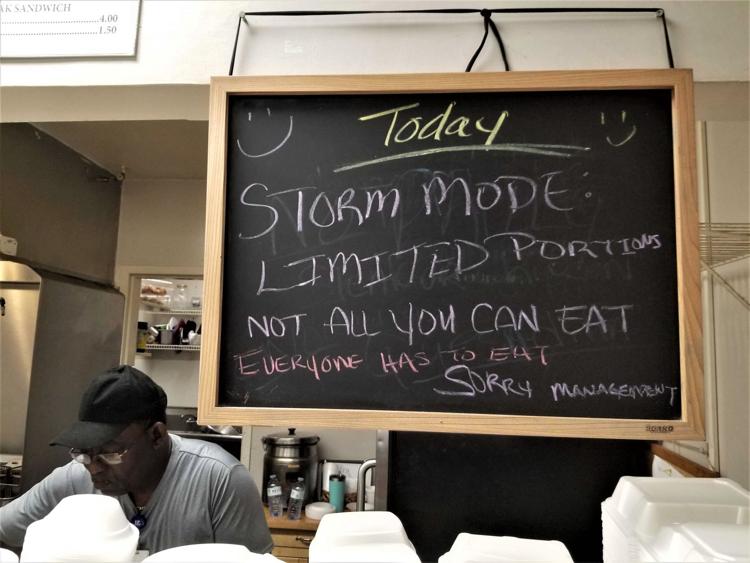 AK SANDWICH
4.00
1.50
Today
STORM MODE:
LIMITED PORTIONS
NOT ALL YOU CAN EAT
EVERYONE HAS TO EAT
SORRY MANAGEMENT